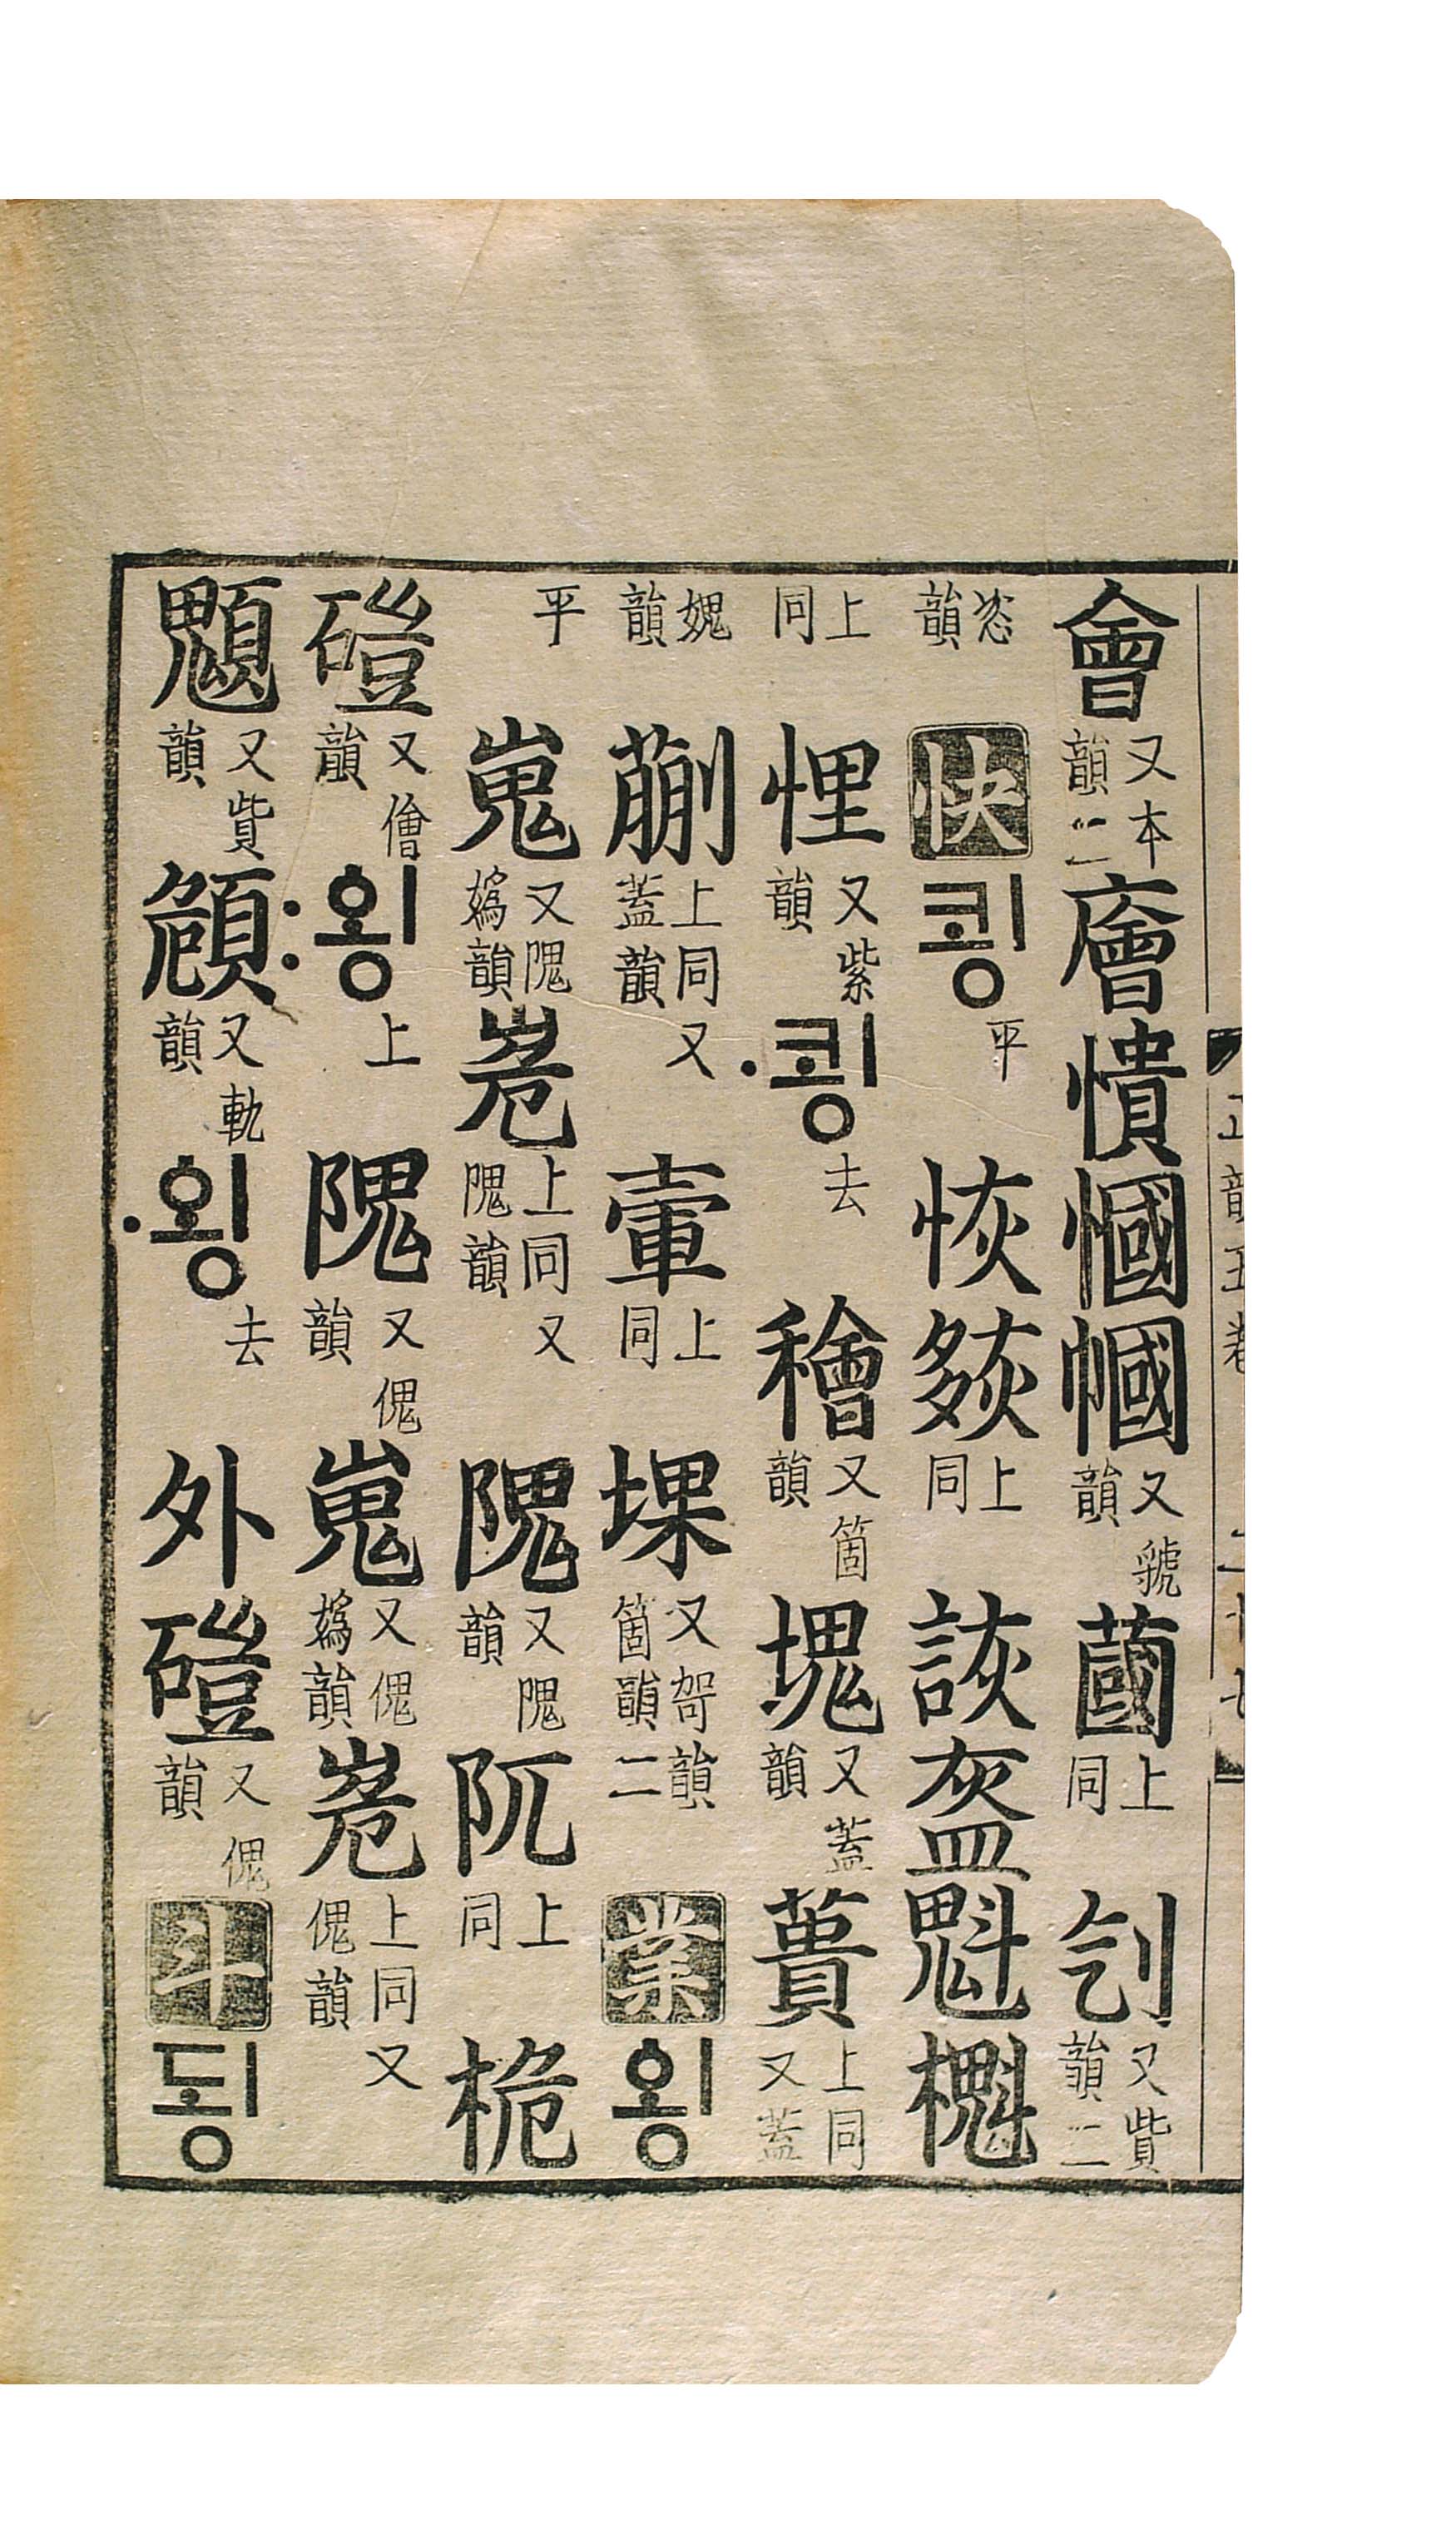 會又本韻二廥憒慖幗又虢韻蔮上同刉又貲韻二
恣韻快쾽平恢㷇上同詼盔魁櫆
上同悝又紫韻·쾽去穭又箇韻塊又蓋韻蕢上同又蓋
媿韻蒯上同又蓋韻䡺上同堁又哿韻箇韻二業욍
平嵬又隗嬀韻峞上同又隗韻隗又隗韻阢上同桅
磑又儈韻:욍上隗又傀韻嵬又傀嬀韻峞上同又傀韻
顝又貲韻頠又軌韻·욍去外磑又傀韻斗됭
正韻五卷